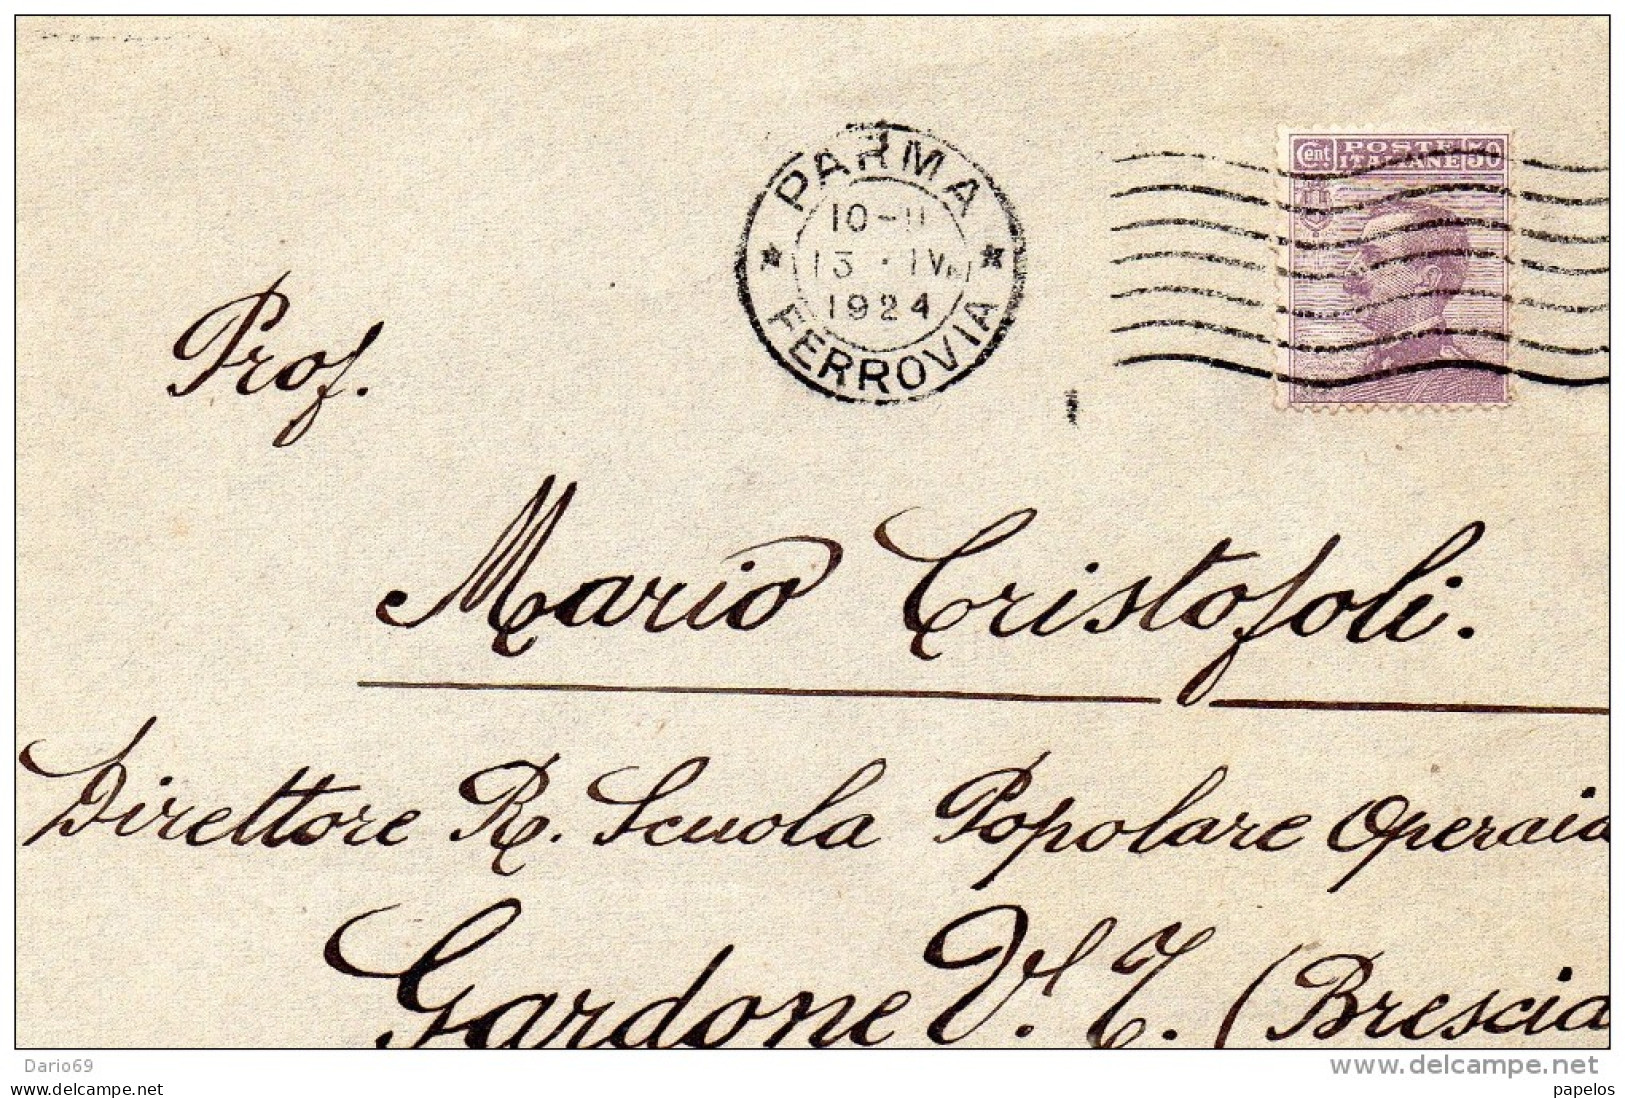 PARMA
10-11
13·IV
1924
FERROVIA
Cent POSTE ITALIANE 50
Prof.
Mario Cristofoli.
Direttore R. Scuola Popolare Operaia
Gardone V. T. (Brescia
Dario69
delcampe.net
papelos
www.delcampe.net